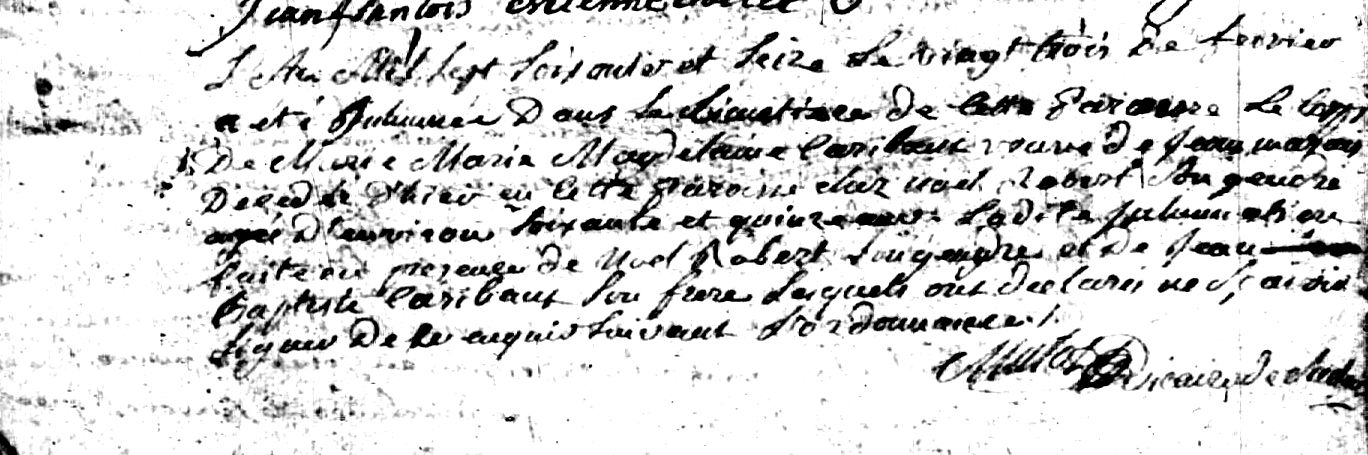 Jean françois Estienne
L'An Mil sept soixante et seize le vingt trois de fevrier
a eté Inhumée Dans le Cimetiere de cette Paroisse le corps
De Marie Magdelaine Caribaut veuve de Jean
Decedée d'hier en cette Paroisse chez noel Robert son gendre
agée D'environ soixante et quinze ans. Ladite Inhumation
faite en presence de Noel Robert son gendre et de Jean
Baptiste Caribaut son frere lesquels ont declaré ne sçavoir
signer De ce enquis suivant L'ordonnance.
vicaire de